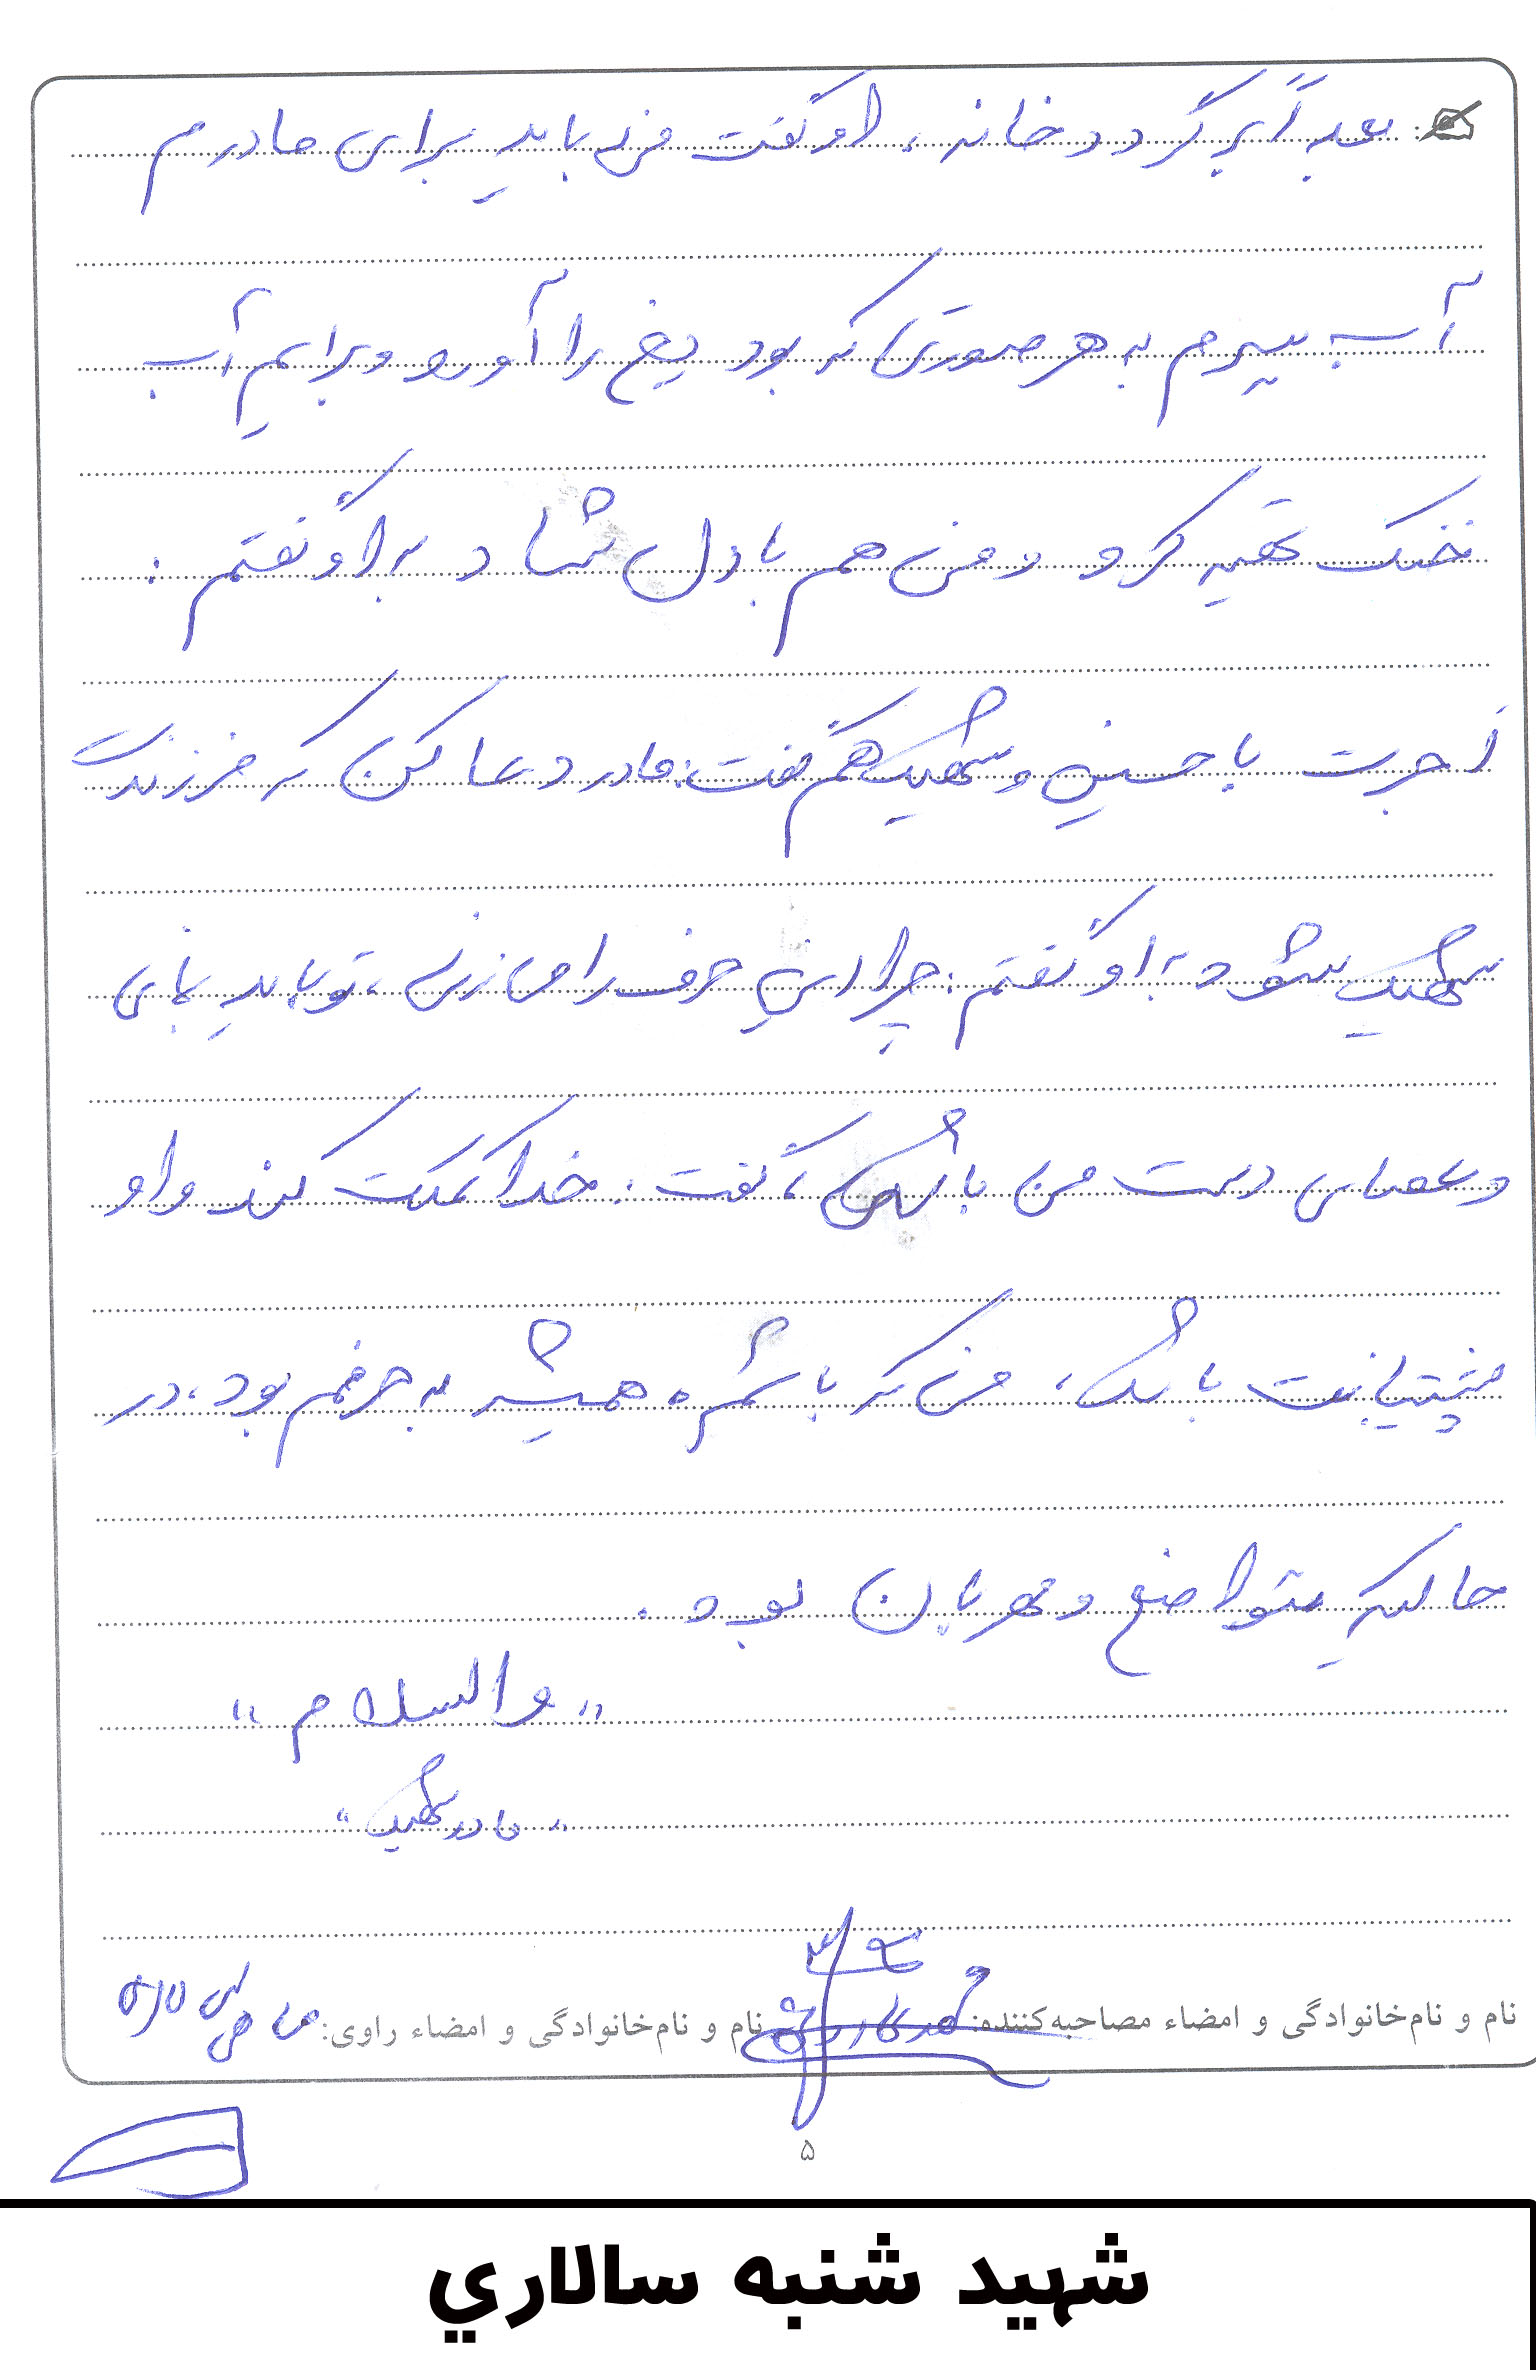 بعداً برگردد خانه، او گفت من باید برای مادرم
آب ببرم به هر صورتی که بود یخ را آورد و برایم آب
خنک تهیه کرد و من هم با دل شاد به او گفتم :
اَجرت با حسین و شهید هم گفت: مادر دعا کن که فرزندت
شهید شود به او گفتم: چرا این حرف را می زنی، تو باید بمانی
و عصای دست من باشی، گفت: خدا کمکت کند و او
پشتیبانت باشد، من که باشم همیشه به حرفم بود، در
حالیکه متواضع و مهربان بود.
"والسلام"
"مادر شهید"
نام و نام‌خانوادگی و امضاء مصاحبه‌کننده: نام و نام‌خانوادگی و امضاء راوی:
۵
شهید شنبه سالاري